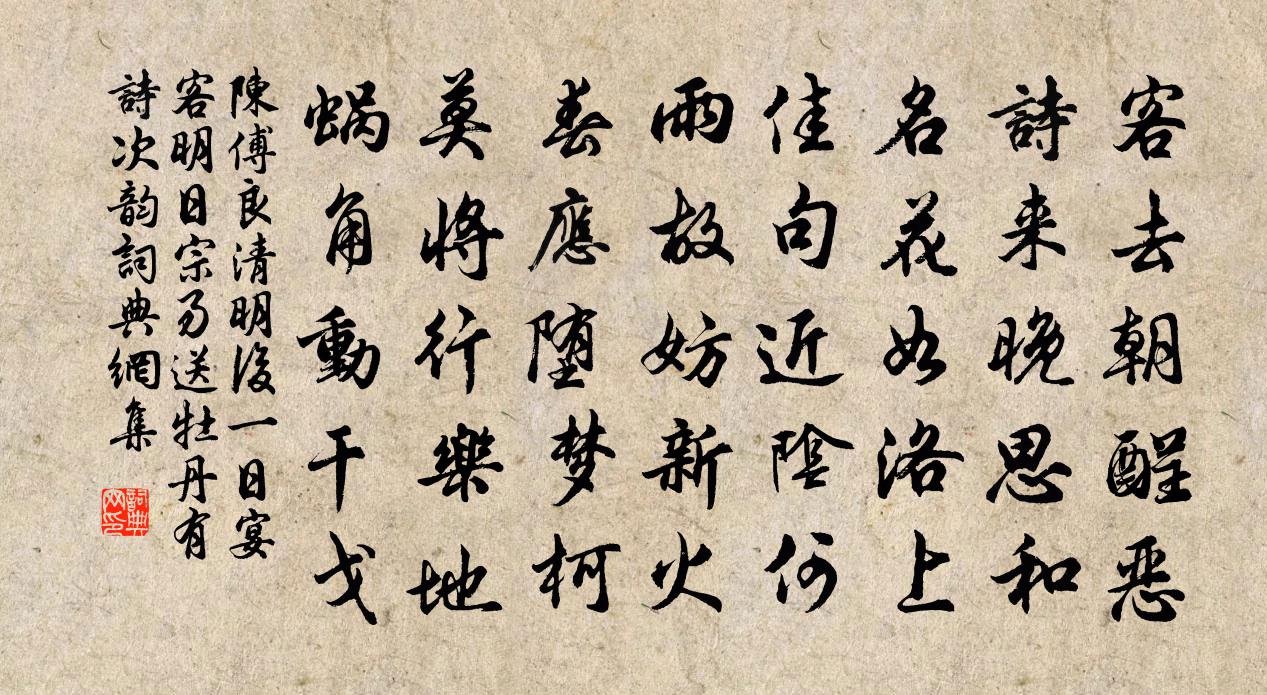 客去朝酲恶
詩来晚思和
名花如洛上
佳句近陰何
雨故妨新火
春應堕梦柯
莫將行樂地
蜗角動干戈
陳傅良清明後一日宴
客明日宗易送牡丹有
詩次韵詞典網集
詞典网印